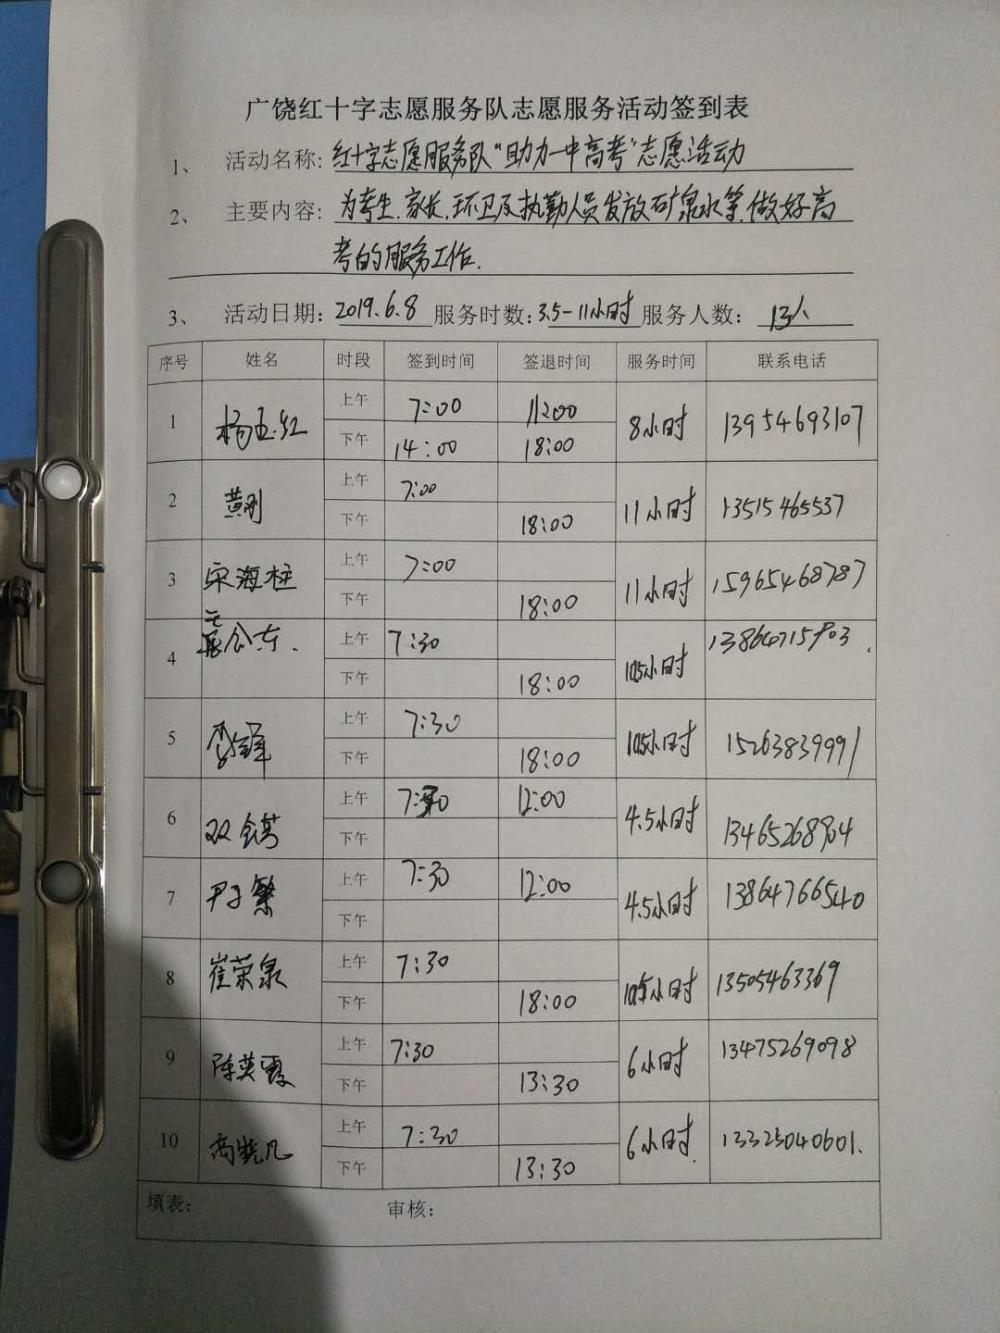 广饶红十字志愿服务队志愿服务活动签到表
1、 活动名称: 红十字志愿服务队“助力一中高考”志愿活动
2、 主要内容: 为考生.家长.环卫及执勤人员发放矿泉水等,做好高
考的服务工作.
3、 活动日期: 2019.6.8 服务时数: 3.5-11小时 服务人数: 13人
序号 姓名 时段 签到时间 签退时间 服务时间 联系电话
1 杨玉红 上午 7:00 11:00 8小时 13954693107
下午 14:00 18:00
2 黄刚 上午 7:00 11小时 13515465537
下午 18:00
3 宋海柱 上午 7:00 11小时 15965468787
下午 18:00
4 上午 7:30 10.5小时
下午 18:00
5 李锋 上午 7:30 10.5小时 15263839991
下午 18:00
6 上午 12:00 4.5小时 13465268904
下午
7 尹子繁 上午 7:30 12:00 4.5小时 13864766540
下午
8 崔荣泉 上午 7:30 10.5小时 13505463369
下午 18:00
9 陈英霞 上午 7:30 6小时 13475269098
下午 13:30
10 高晓凡 上午 7:30 6小时 13325040601.
下午 13:30
填表: 审核: